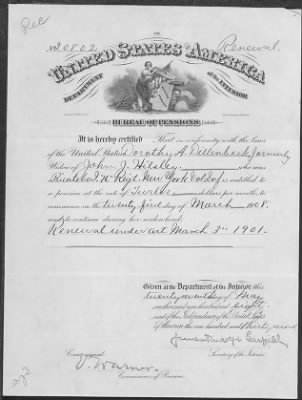 No 20802
Renewal.
UNITED STATES OF AMERICA
DEPARTMENT of the INTERIOR
BUREAU OF PENSIONS
It is hereby certified That in conformity with the laws
of the United States Dorothy A. Dillenbeck, formerly
Widow of John J. who was
a Regt. New York is entitled to
a pension at the rate of Twelve dollars per month, to
commence on the twenty first day of March 1908.
and to continue during her widowhood.
Renewal under act March 3rd 1901.
Given at the Department of the Interior this
day of May
one thousand nine hundred and eight
and of the Independence of the United States
of America the one hundred and thirty second
Secretary of the Interior.
Countersigned,
V. Warner
Commissioner of Pensions.